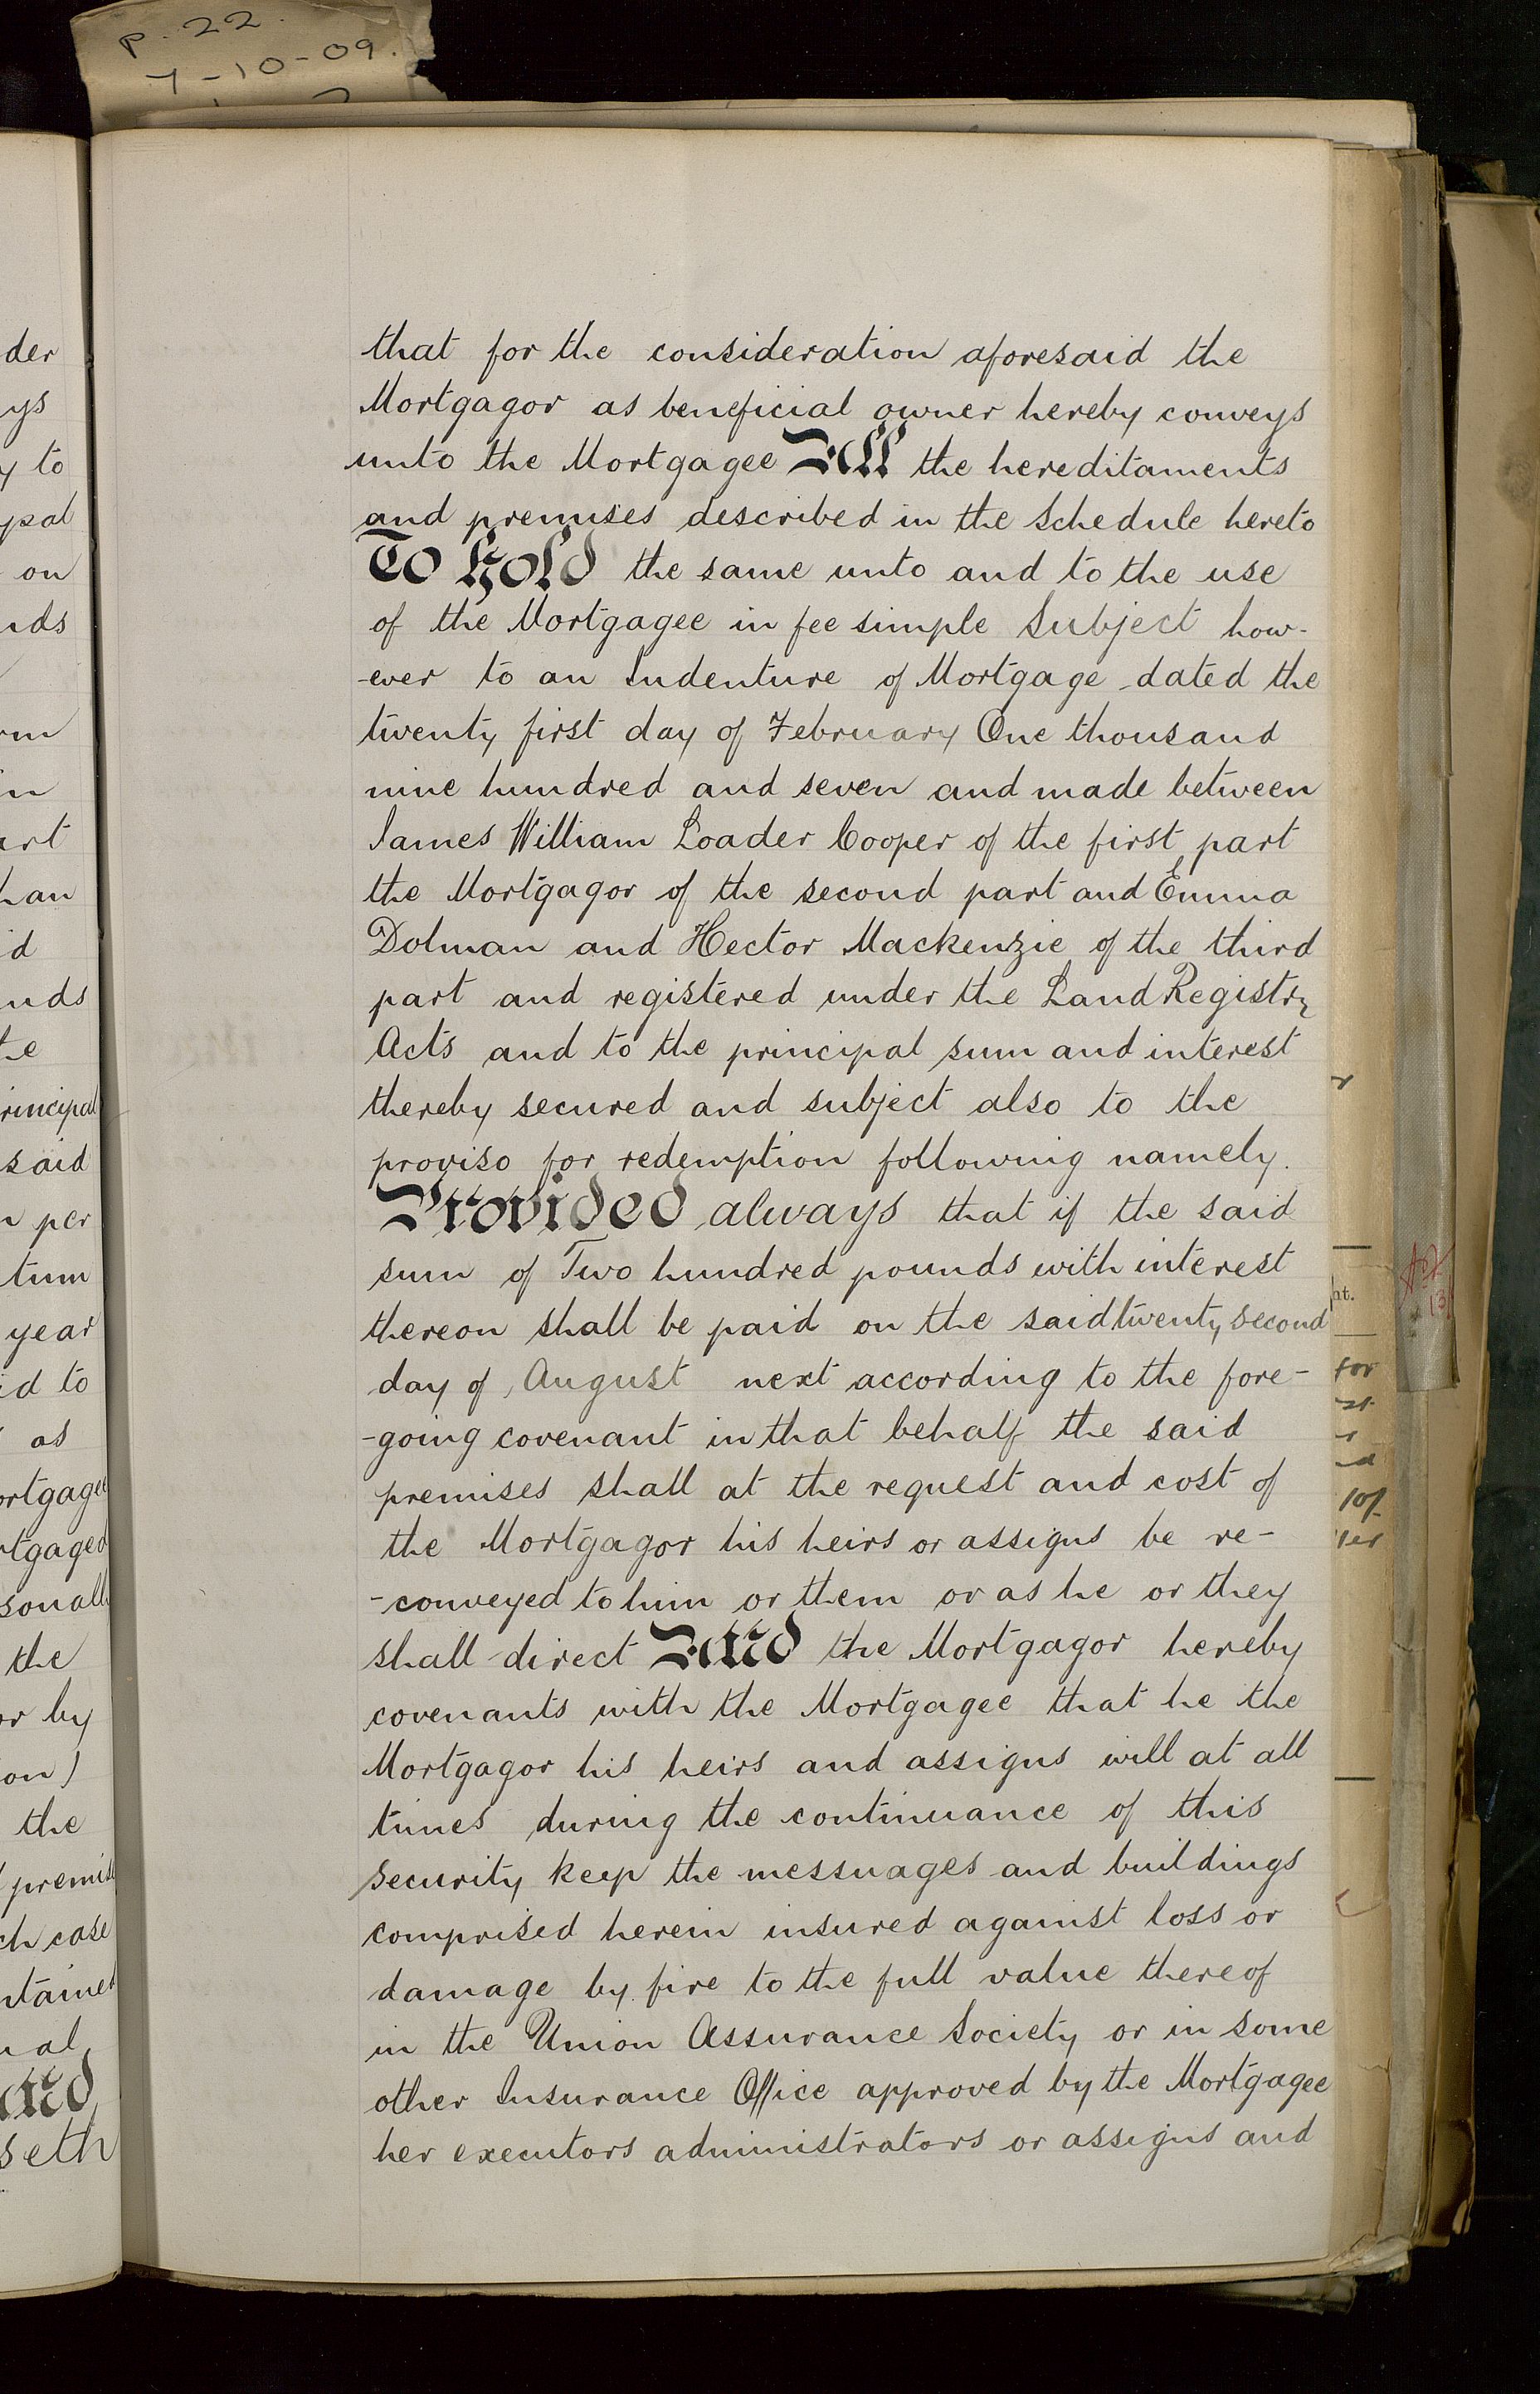 p. 22.
7-10-09.
der
ys
y to
ypal
on
nds
rm
in
art
han
id
nds
the
rincipal
said
n per
tum
year
id to
as
ortgagee
rtgaged
sonall
the
or by
ion)
the
premis
ch case
ntained
nal
And
seth
that for the consideration aforesaid the
Mortgagor as beneficial owner hereby conveys
unto the Mortgagee All the hereditaments
and premises described in the Schedule hereto
To Hold the same unto and to the use
of the Mortgagee in fee simple Subject how-
-ever to an Indenture of Mortgage dated the
twenty first day of February One thousand
nine hundred and seven and made between
James William Loader Cooper of the first part
the Mortgagor of the second part and Emma
Dolman and Hector Mackenzie of the third
part and registered under the Land Registry
Acts and to the principal sum and interest
thereby secured and subject also to the
proviso for redemption following namely.
Provided always that if the said
sum of Two hundred pounds with interest
thereon shall be paid on the said twenty second
day of August next according to the fore-
-going covenant in that behalf the said
premises shall at the request and cost of
the Mortgagor his heirs or assigns be re-
-conveyed to him or them or as he or they
shall direct And the Mortgagor hereby
covenants with the Mortgagee that he the
Mortgagor his heirs and assigns will at all
times during the continuance of this
security keep the messuages and buildings
comprised herein insured against loss or
damage by fire to the full value thereof
in the Union Assurance Society or in some
other Insurance Office approved by the Mortgagee
her executors administrators or assigns and
ht.
for
10/-